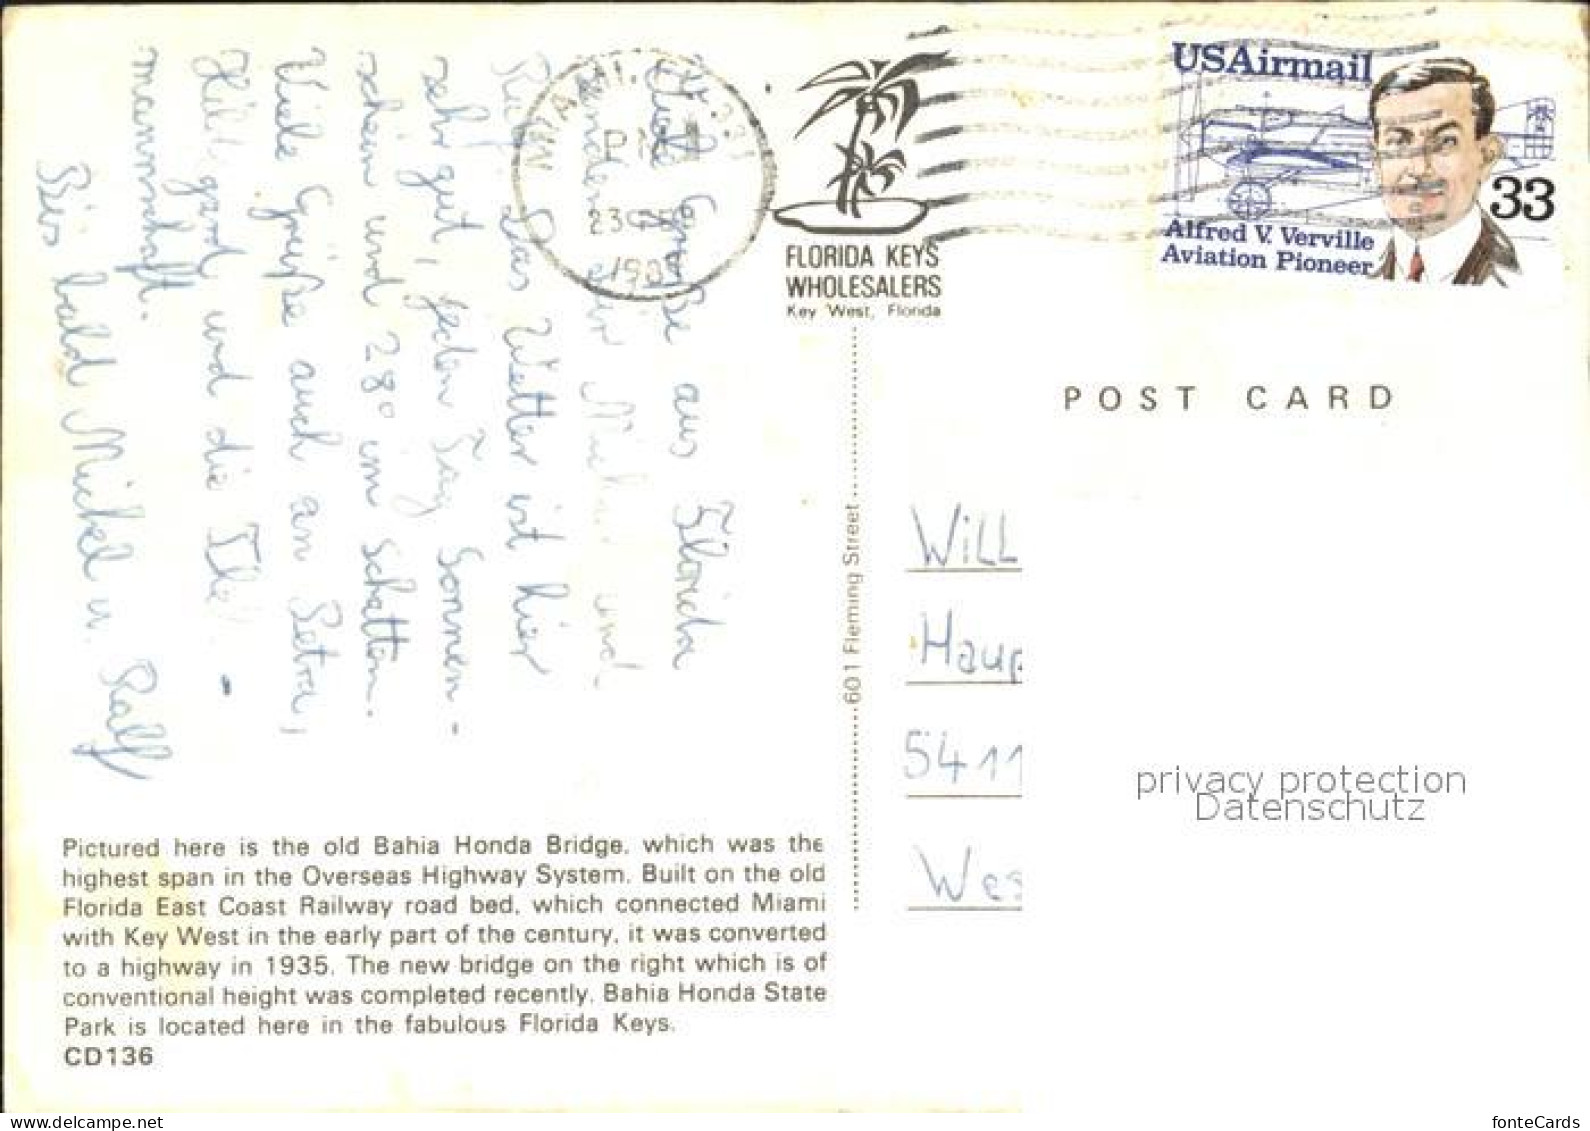 USAirmail
33
Alfred V. Verville
Aviation Pioneer
MIAMI, FL 331
PM
FLORIDA KEYS
WHOLESALERS
Key West, Florida
POST CARD
601 Fleming Street
Grüße aus Florida
senden euch Michel und
Ralf. Das Wetter ist hier
sehr gut, jeden Tag Sonnen-
schein und 28° im Schatten.
Viele Grüße auch an Petra,
Hildgard und die
mannschaft.
Bis bald Mickel u. Ralf
WiLL
Haup
5411
Wes
privacy protection
Datenschutz
Pictured here is the old Bahia Honda Bridge, which was the
highest span in the Overseas Highway System. Built on the old
Florida East Coast Railway road bed, which connected Miami
with Key West in the early part of the century, it was converted
to a highway in 1935. The new bridge on the right which is of
conventional height was completed recently. Bahia Honda State
Park is located here in the fabulous Florida Keys.
CD136
www.delcampe.net
fonteCards